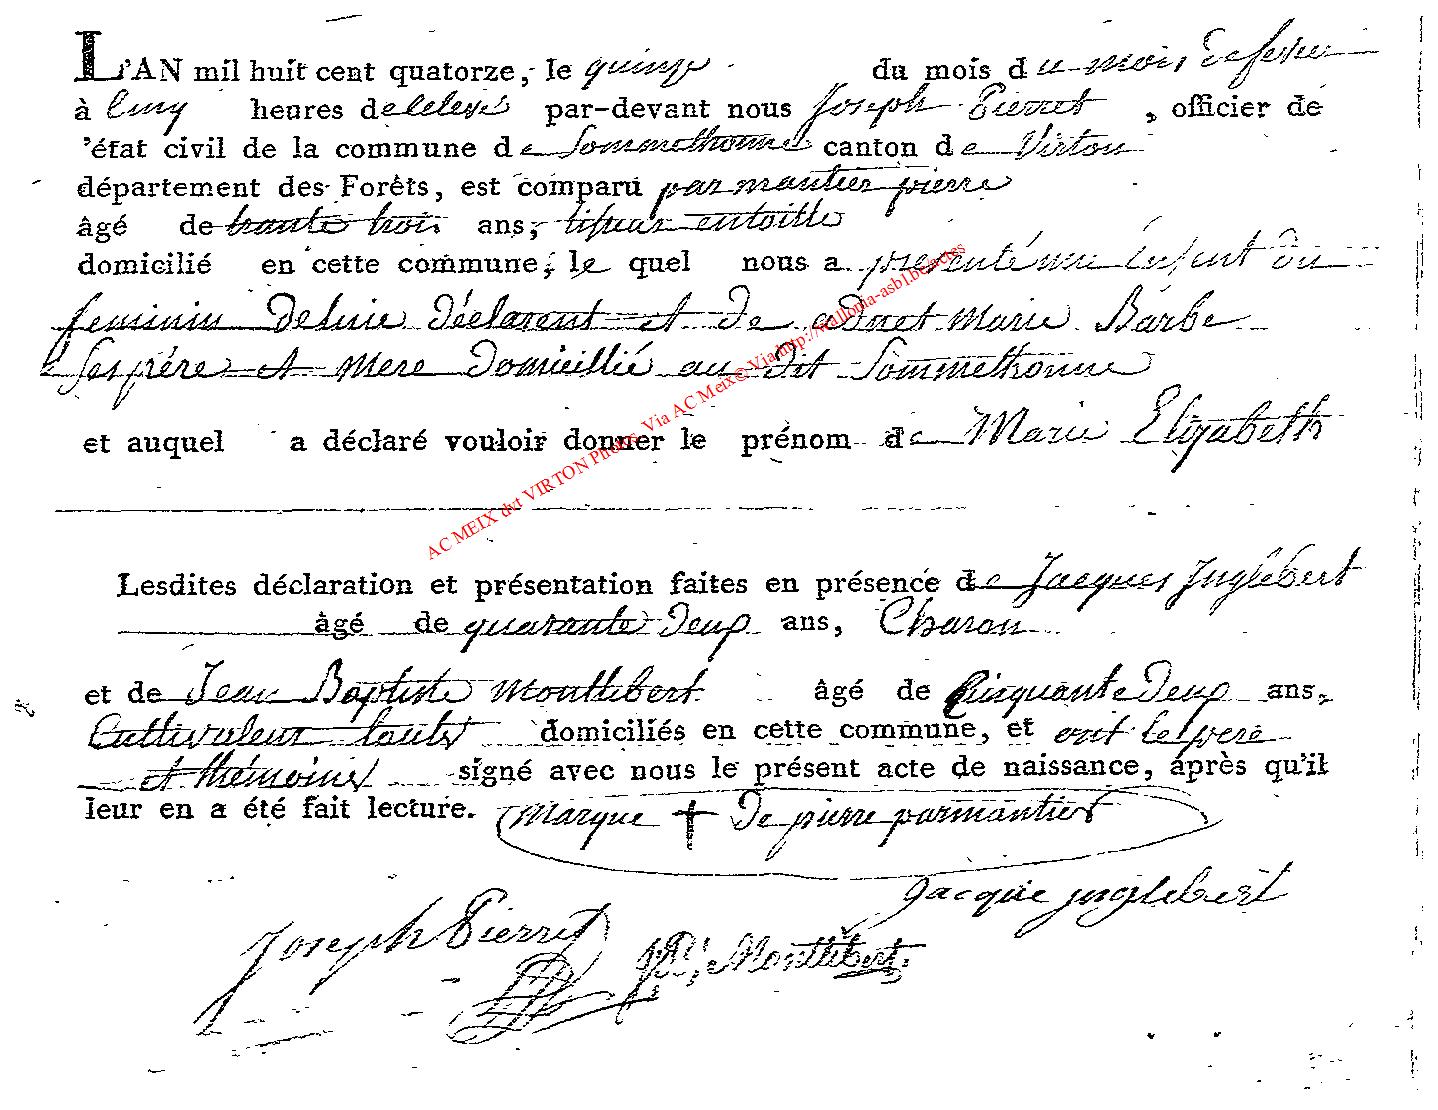 L'AN mil huit cent quatorze, le quinze du mois du mois de fevrie
à cinq heures de par-devant nous Joseph Pierret, officier de
'état civil de la commune de Sommethonne canton de Virton
département des Forêts, est comparu parmantier pierre
âgé de trante trois ans, tisseur entoille
domicilié en cette commune, le quel nous a presenté une enfent du
feminin delui déclarent et de adnet Marie Barbe
ses père et mere domicillié au dit Sommethonne
et auquel a déclaré vouloir donner le prénom de Marie Elizabeth
Lesdites déclaration et présentation faites en présence de Jacques Inglebert
âgé de quarante deux ans, Charon
et de Jean Baptiste Montlibert âgé de Cinquante deux ans,
Cultivateur touts domiciliés en cette commune, et ont le pere
et thémoins signé avec nous le présent acte de naissance, après qu'il
leur en a été fait lecture. Marque † de pierre parmantier
jacque jnglebert
Joseph Pierret
Montlibert
AC MEIX dvt VIRTON Photos Via AC Meix© Via http://wallonia-asbl.be/actes